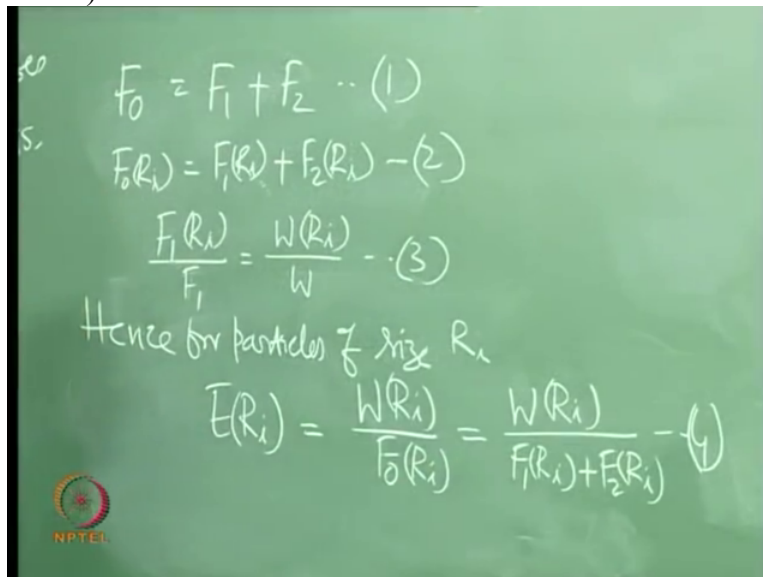 )
F₀ = F₁ + F₂ -- (1)
S,
F₀(Rᵢ) = F₁(Rᵢ) + F₂(Rᵢ) - (2)
F₁(Rᵢ) / F₁ = W(Rᵢ) / W -- (3)
Hence for particles of size Rᵢ
E(Rᵢ) = W(Rᵢ) / F₀(Rᵢ) = W(Rᵢ) / F₁(Rᵢ) + F₂(Rᵢ) - (4)
NPTEL